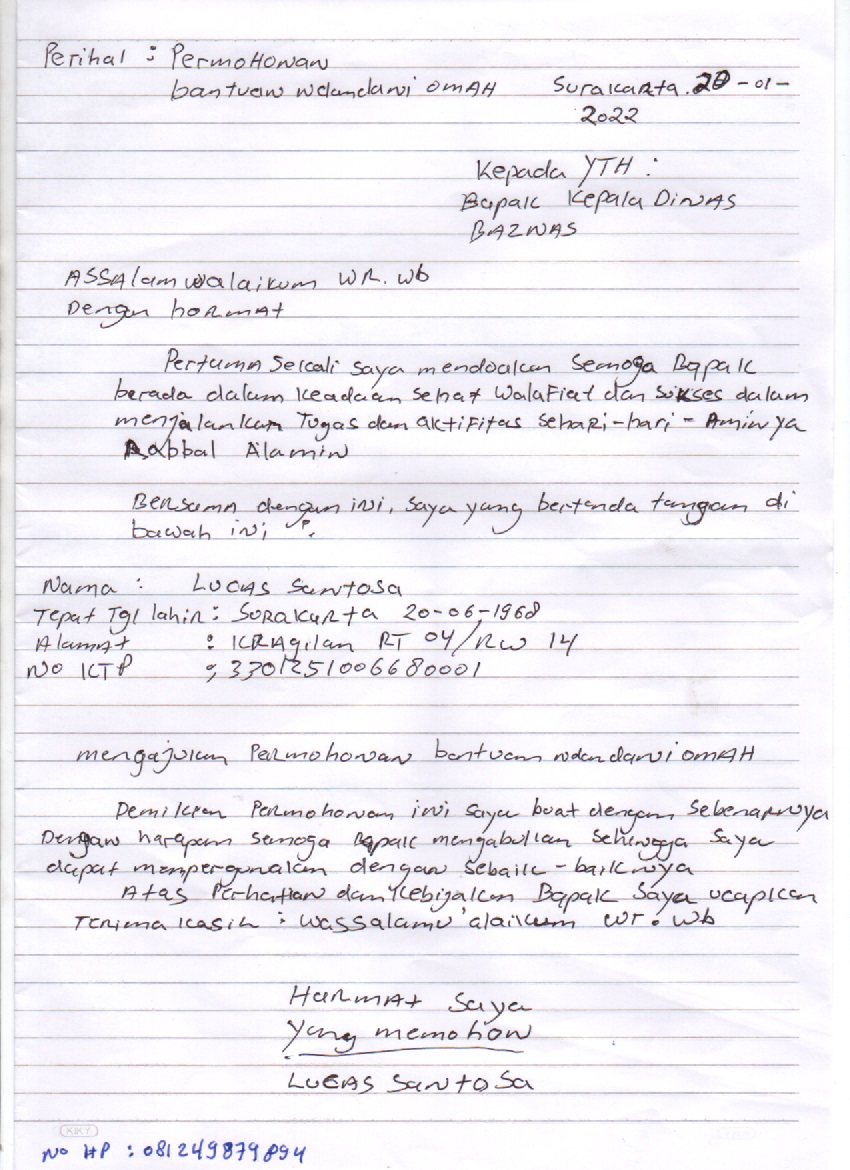 Perihal : Permohonan
bantuan ndandani omAH
Surakarta. 20-01-
2022
Kepada YTH :
Bapak Kepala DiNAS
BAZNAS
ASSAlamwalaikum WR. Wb
Dengn hoRMAt
Pertama Sekali saya mendoakan Semoga Bapak
berada dalam keadaan sehat WalaFiat dan sukses dalam
menjalankan Tugas dan aktifitas sehari-hari - Amin ya
Rabbal Alamin
Bersama dengan ini, saya yang bertanda tangan di
bawah ini
Nama : LUCAS SantoSa
Tepat Tgl lahir : SURAKARta 20-06-1968
Alamat : KRAgilan RT 04/RW 14
No KTP : 3301251006680001
mengajukan Permohonan bantuan ndandani omAH
Demikian Permohonan ini saya buat dengan Sebenarnya
Dengan harapan semoga Bapak mengabulkan Sehingga Saya
dapat mempergunakan dengan sebaik-baiknya
Atas Perhatian dan Kebijakan Bapak Saya ucapkan
Terima kasih : Wassalamu'alaikum Wr. Wb
HarMAt Saya
Yang memohon
LUCAS SantoSa
KIKY
No HP : 081249879894